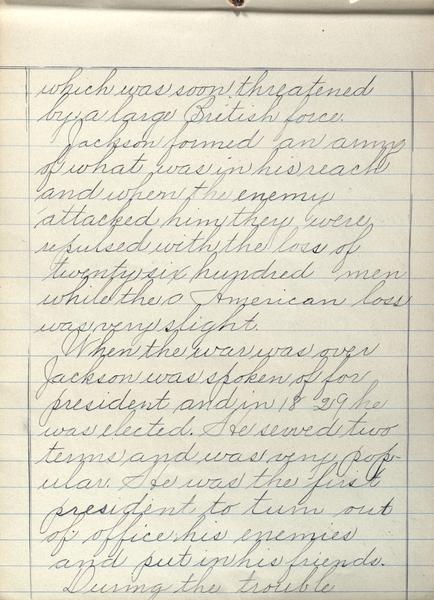 which was soon threatened
by a large British force.
Jackson formed an army
of what was in his reach
and when the enemy
attacked him they were
repulsed with the loss of
twenty six hundred men
while the American loss
was very slight.
When the war was over
Jackson was spoken of for
president and in 1829 he
was elected. He served two
terms and was very pop-
ular. He was the first
president to turn out
of office his enemies
and put in his friends.
During the trouble